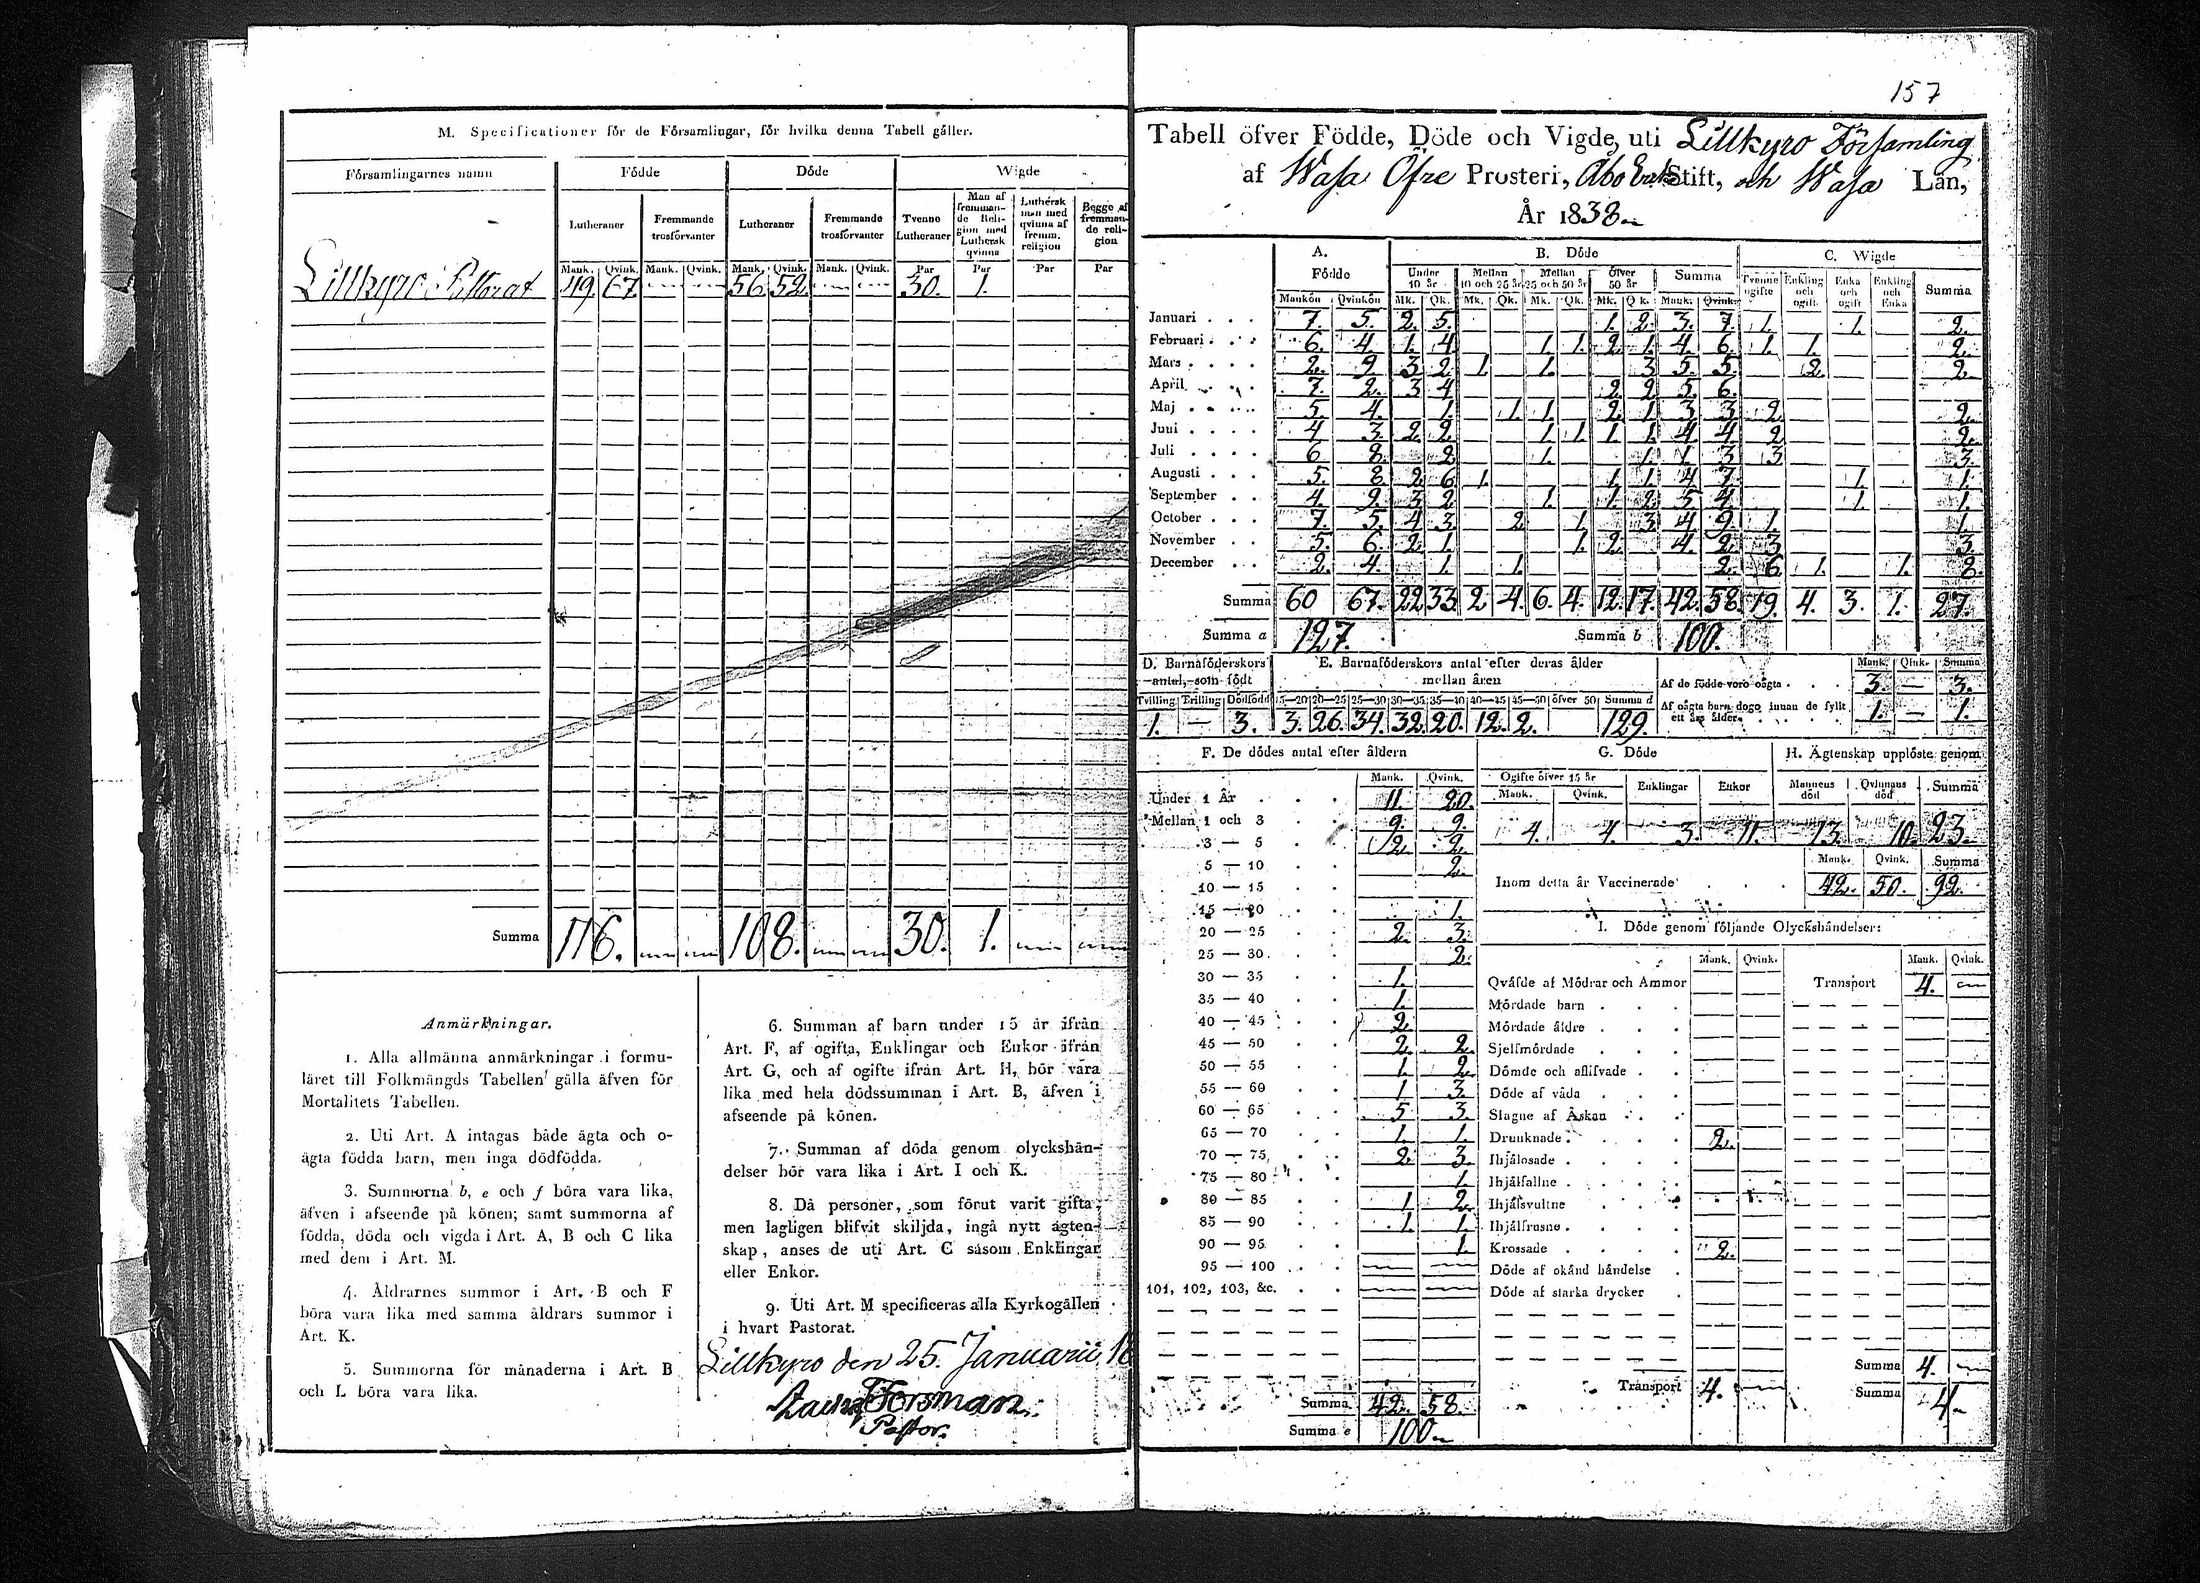 M. Specificationer för de Församlingar, för hvilka denna Tabell gäller.
Församlingarnes namn Födde Döde Wigde
Lutheraner Fremmande trosförvanter Lutheraner Fremmande trosförvanter Tvenne Lutheraner Man af fremmande Religion med Luthersk qvinna Luthersk man med qvinna af fremm. religion Begge af fremmande religion
Mank. Qvink. Mank. Qvink. Mank. Qvink. Mank. Qvink. Par Par Par Par
Lillkyro Pastorat 49. 67. 56. 52. 30. 1.
Summa 116. 108. 30. 1.
Anmärkningar.
1. Alla allmänna anmärkningar i formu-
läret till Folkmängds Tabellen gälla äfven för
Mortalitets Tabellen.
2. Uti Art. A intagas både ägta och o-
ägta födda barn, men inga dödfödda.
3. Summorna b, e och f böra vara lika,
äfven i afseende på könen; samt summorna af
födda, döda och vigda i Art. A, B och C lika
med dem i Art. M.
4. Åldrarnes summor i Art. B och F
böra vara lika med samma åldrars summor i
Art. K.
5. Summorna för månaderna i Art. B
och L böra vara lika.
6. Summan af barn under 15 år ifrån
Art. F, af ogifta, Enklingar och Enkor ifrån
Art. G, och af ogifte ifrån Art. H, bör vara
lika med hela dödssumman i Art. B, äfven i
afseende på könen.
7. Summan af döda genom olyckshän-
delser bör vara lika i Art. I och K.
8. Då personer, som förut varit gifta,
men lagligen blifvit skiljda, ingå nytt ägten-
skap, anses de uti Art. C såsom Enklingar
eller Enkor.
9. Uti Art. M specificeras alla Kyrkogällen
i hvart Pastorat.
Lillkyro den 25. Januarii 18
Forsman
Pastor.
157
Tabell öfver Födde, Döde och Vigde, uti Lillkyro Församling
af Wasa Öfre Prosteri, Åbo Erke Stift, och Wasa Län,
År 1838
A. Födde B. Döde C. Wigde
Under 10 år Mellan 10 och 25 år Mellan 25 och 50 år Öfver 50 år Summa Tvenne ogifte Enkling och ogift Enka och ogift Enkling och Enka Summa
Mankön Qvinkön Mk. Qk. Mk. Qk. Mk. Qk. Mk. Qk. Mank. Qvink.
Januari 7. 5. 2. 5. 1. 2. 3. 7. 1. 1. 2.
Februari 6. 4. 1. 4. 1. 1. 2. 1. 4. 6. 1. 1. 2.
Mars 2. 9. 3 2. 1. 1. 3 5 5. 2. 2.
April 7. 2. 3 4 2 2 5 6.
Maj 5. 4. 1. 1. 1. 2. 1. 3 3 2. 2.
Juni 4 3. 2 2. 1. 1. 1. 1. 4 4 2. 2.
Juli 6 8. 2 1. 1. 1. 3 3 3.
Augusti 5. 8 2 6 1. 1. 1. 4 7. 1. 1.
September 4. 9. 3 2 1. 1. 2. 5 4. 1. 1.
October 7. 5. 4 3. 2. 1. 3. 4 9. 1. 1.
November 5. 6. 2. 1. 1. 2. 4. 2. 3. 3.
December 2. 4. 1. 1. 2. 6. 1. 1. 8.
Summa 60 67. 22 33. 2 4. 6. 4. 12. 17. 42. 58. 19. 4. 3. 1. 27.
Summa a 127. Summa b 100.
D. Barnaföderskors antal, som födt E. Barnaföderskors antal efter deras ålder mellan åren
Tvilling Trilling Dödfödd 15—20 20—25 25—30 30—35 35—40 40—45 45—50 öfver 50 Summa d
1. — 3. 3. 26. 34. 32. 20. 12. 2. 129.
Mank. Qink. Summa
Af de födde voro oägta 3. — 3.
Af oägta barn dogo innan de fyllt ett års ålder 1. — 1.
F. De dödes antal efter åldern
Mank. Qvink.
Under 1 År 11. 20.
Mellan 1 och 3 9. 9.
3 — 5 2. 2.
5 — 10 2.
10 — 15
15 — 20 1.
20 — 25 2. 3.
25 — 30 2.
30 — 35 1.
35 — 40 1.
40 — 45 2.
45 — 50 2. 2.
50 — 55 1. 2.
55 — 60 1 3.
60 — 65 5 3.
65 — 70 1. 1.
70 — 75 2. 3.
75 — 80 1.
80 — 85 1. 2.
85 — 90 1. 1.
90 — 95 1.
95 — 100
101, 102, 103, &c.
Summa 42. 58.
Summa e 100.
G. Döde
Ogifte öfver 15 år Enklingar Enkor
Mank. Qvink.
4. 4. 3. 11.
H. Ägtenskap upplöste genom
Mannens död Qvinnans död Summa
13. 10. 23.
Mank. Qvink. Summa
Inom detta år Vaccinerade 42. 50. 92.
I. Döde genom följande Olyckshändelser:
Mank. Qvink. Mank. Qvink.
Qväfde af Mödrar och Ammor Transport 4. —
Mördade barn
Mördade äldre
Sjelfmördade
Dömde och aflifvade
Döde af våda
Slagne af Åskan
Drunknade 2.
Ihjälosade
Ihjälfallne
Ihjälsvultne
Ihjälfrusne
Krossade 2.
Döde af okänd händelse
Döde af starka drycker
Summa 4. —
Transport 4. — Summa 4.